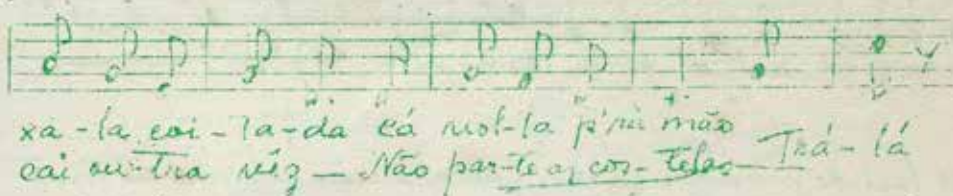 xa-la coi-ta-da cá vol-ta p'rà mão
cai ou-tra vêz — Não par-te as cos-telas — Trá-lá